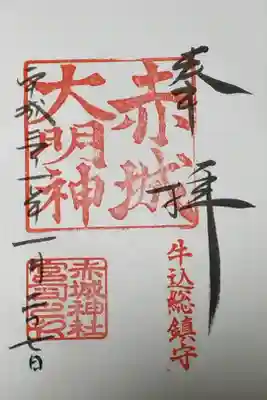 奉拝
赤城
大明神
牛込総鎮守
赤城神社
平成三十一年一月二十七日